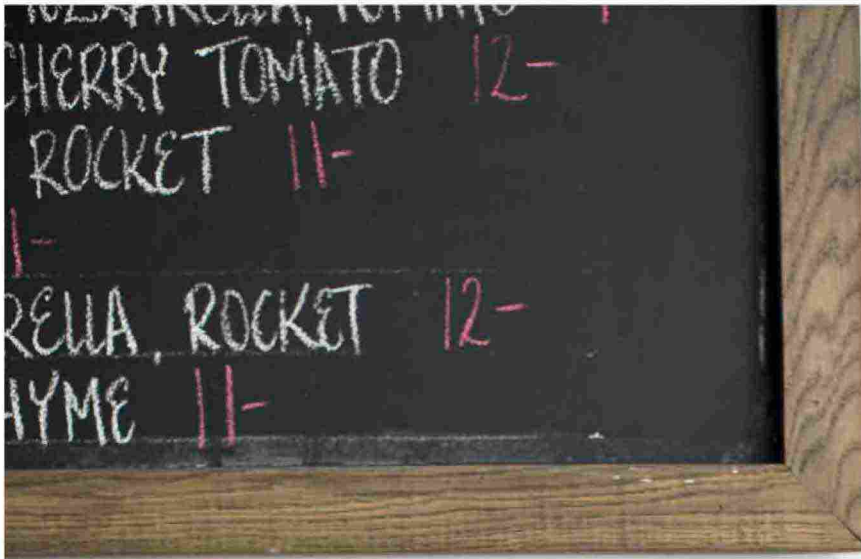 TOMATO
CHERRY TOMATO 12-
ROCKET 11-
1-
RELLA, ROCKET 12-
HYME 11-